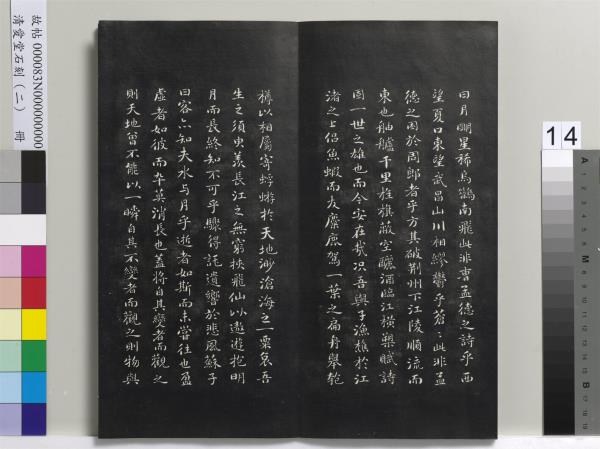 故帖 000083N000000000
清愛堂石刻（二） 冊
14
曰月明星稀烏鵲南飛此非曹孟德之詩乎西
望夏口東望武昌山川相繆鬱乎蒼〻此非孟
德之困於周郎者乎方其破荆州下江陵順流而
東也舳艫千里旌旗蔽空釃酒臨江橫槊賦詩
固一世之雄也而今安在哉况吾與子漁樵於江
渚之上侶魚蝦而友麋鹿駕一葉之扁舟舉匏
樽以相屬寄蜉蝣於天地渺滄海之一粟哀吾
生之須臾羡長江之無窮挾飛仙以遨遊抱明
月而長終知不可乎驟得託遺響於悲風蘇子
曰客亦知夫水與月乎逝者如斯而未嘗往也盈
虛者如彼而卒莫消長也蓋將自其變者而觀之
則天地曾不能以一瞬自其不變者而觀之則物與